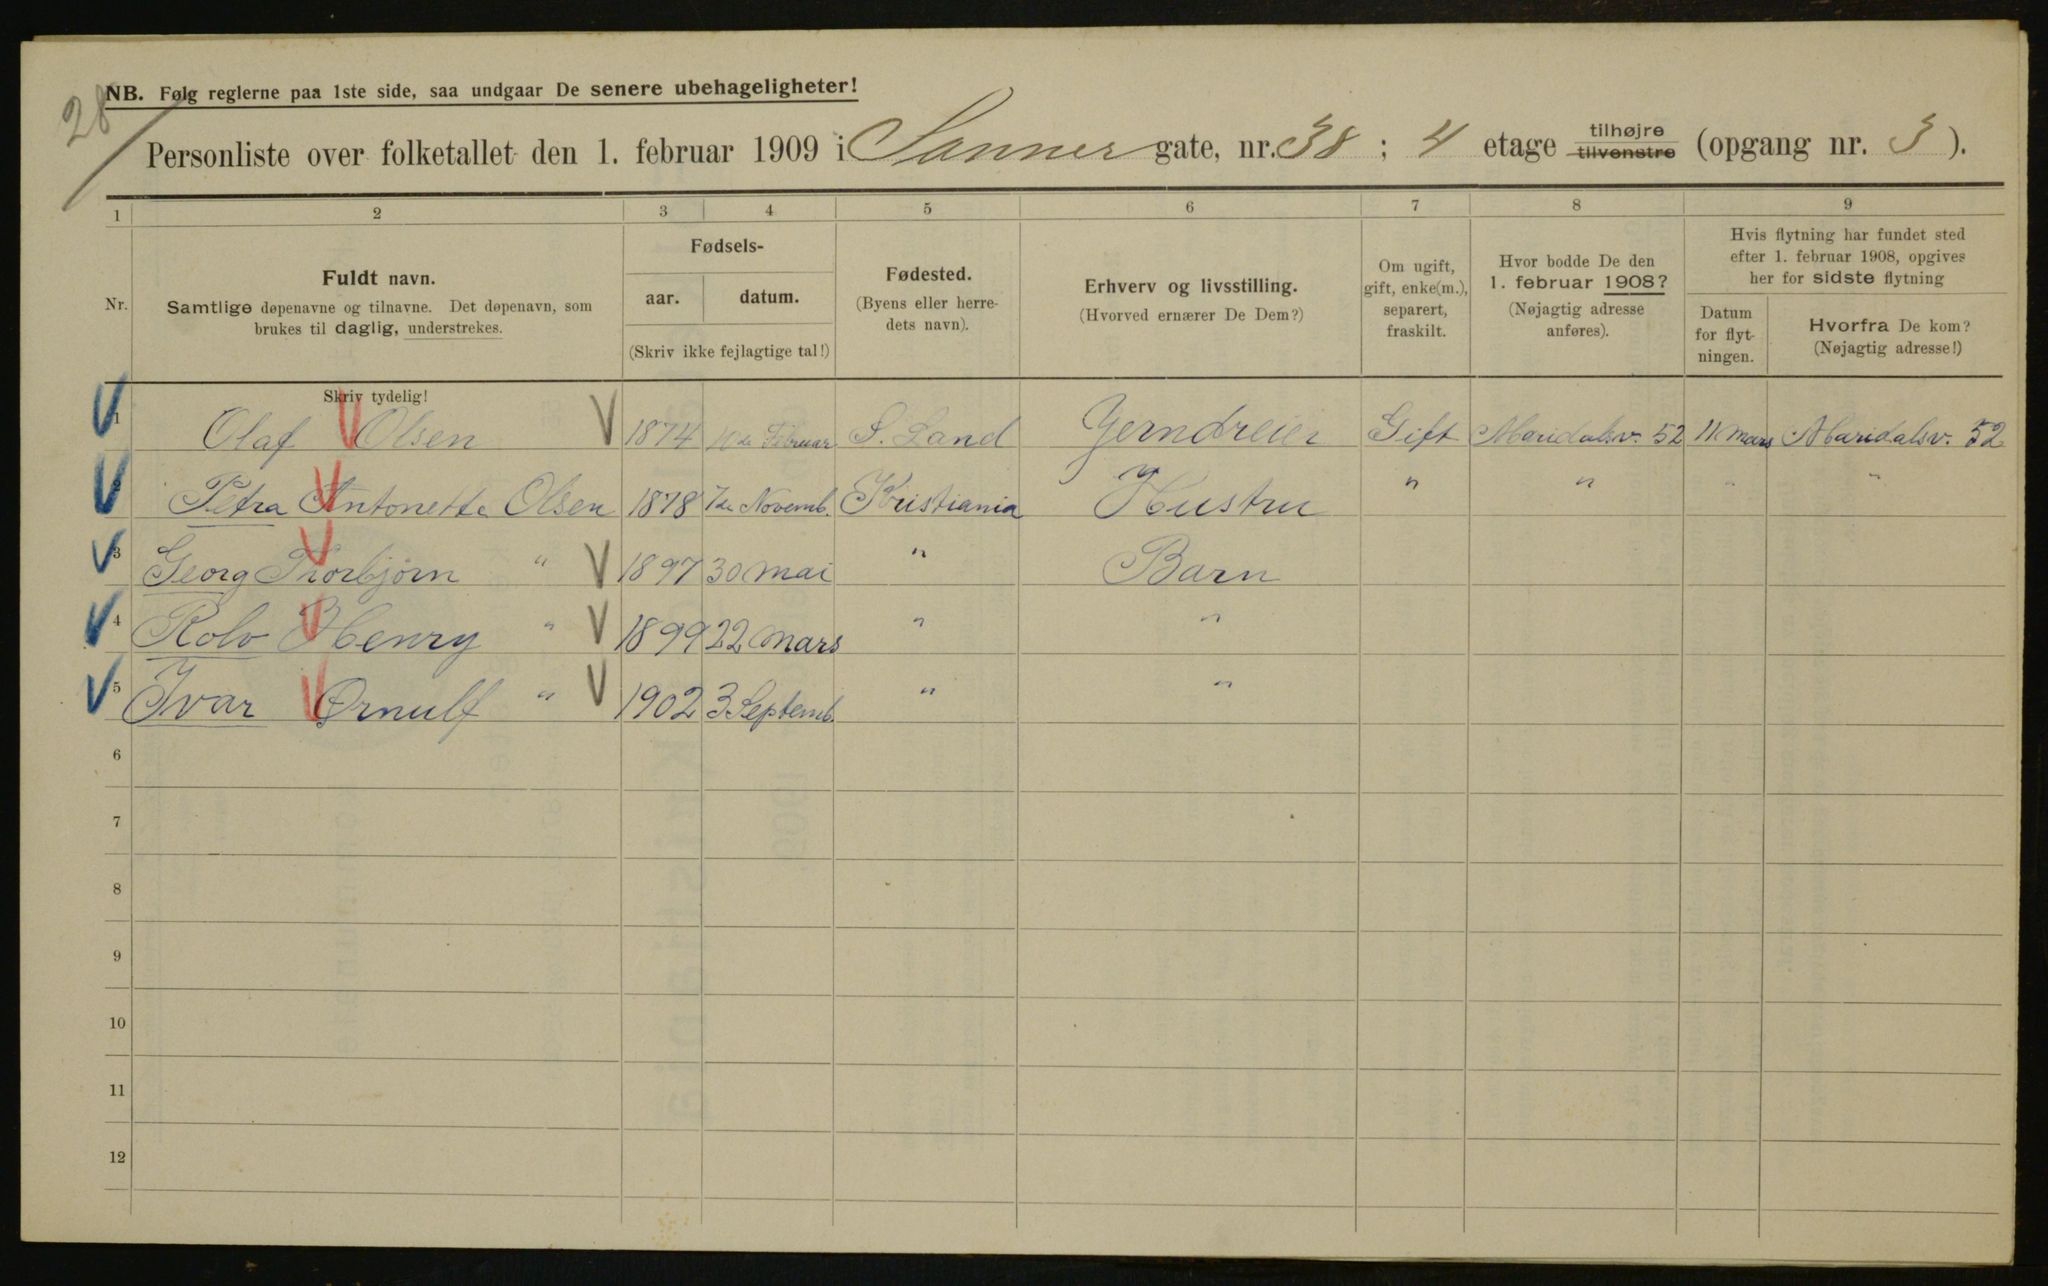 28
NB. Følg reglerne paa 1ste side, saa undgaar De senere ubehageligheter!
Personliste over folketallet den 1. februar 1909 i Sanner gate, nr. 38 ; 4 etage tilhøjre tilvenstre (opgang nr. 3 ).
1 2 3 4 5 6 7 8 9
Nr.
Fuldt navn.
Samtlige døpenavne og tilnavne. Det døpenavn, som
brukes til daglig, understrekes.
Fødsels-
aar. datum.
(Skriv ikke fejlagtige tal!)
Fødested.
(Byens eller herre-
dets navn).
Erhverv og livsstilling.
(Hvorved ernærer De Dem?)
Om ugift,
gift, enke(m.),
separert,
fraskilt.
Hvor bodde De den
1. februar 1908?
(Nøjagtig adresse
anføres).
Hvis flytning har fundet sted
efter 1. februar 1908, opgives
her for sidste flytning
Datum
for flyt-
ningen.
Hvorfra De kom?
(Nøjagtig adresse!)
Skriv tydelig!
1 Olaf Olsen 1874 10de Februar S. Land Jerndreier Gift Maridalsv. 52 11 Mars Maridalsv. 52
Petra Antonette Olsen 1878 7de Novemb. Kristiania Hustru " " " "
3 Georg Thorbjørn " 1897 30 mai " Barn
4 Rolv Henry " 1899 22 mars " "
5 Ivar Ørnulf " 1902 3 Septemb. " "
6
7
8
9
10
11
12